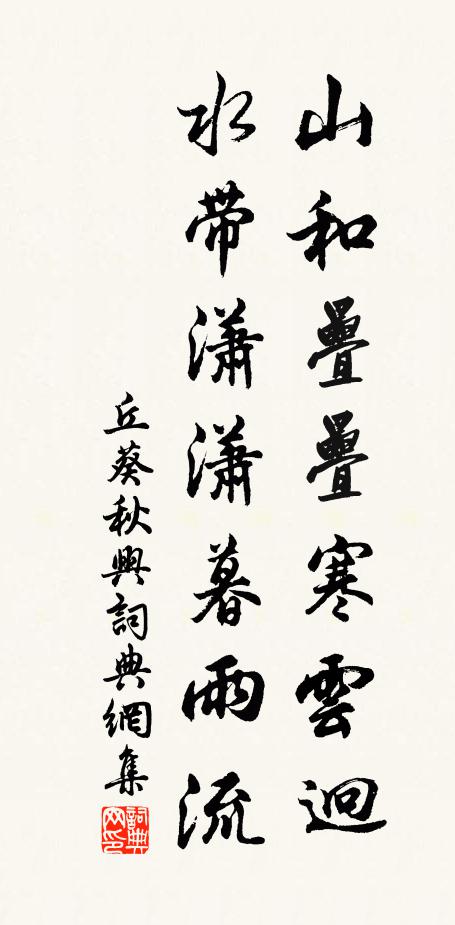 山和疊疊寒雲迥
水帶瀟瀟暮雨流
丘葵秋興詞典網集
詞典網印